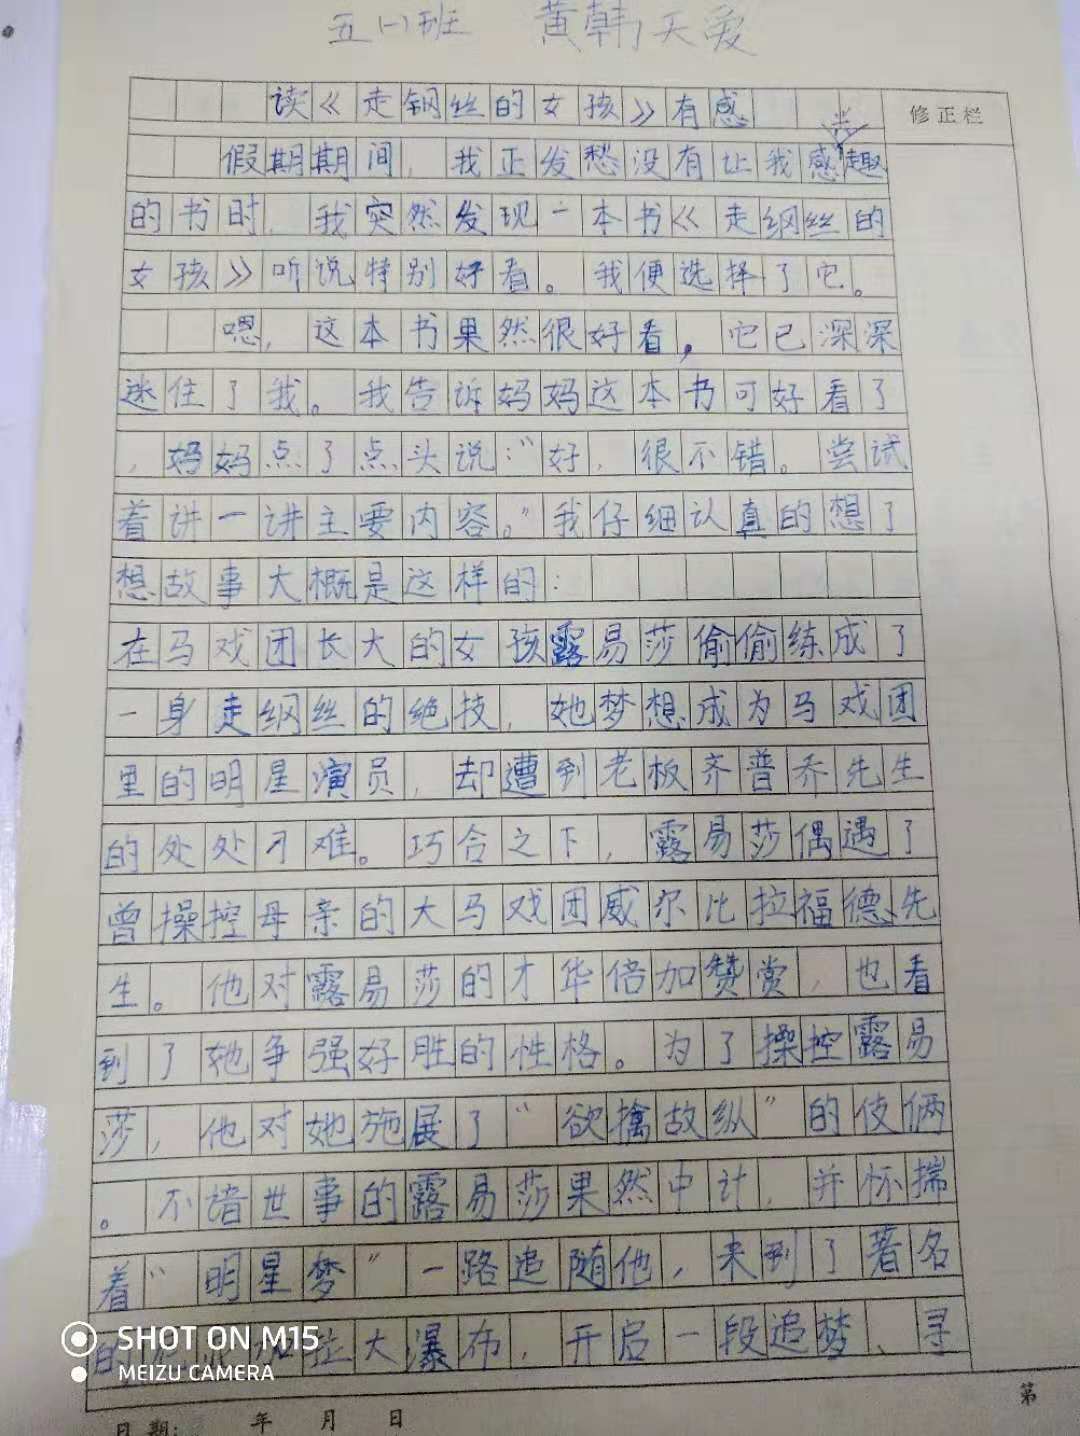 五(一)班 黄韩天爱
读《走钢丝的女孩》有感
修正栏
假期期间,我正发愁没有让我感兴趣
的书时,我突然发现一本书《走纲丝的
女孩》听说特别好看。我便选择了它。
嗯,这本书果然很好看,它已深深
迷住了我。我告诉妈妈这本书可好看了
,妈妈点了点头说:“好,很不错。尝试
着讲一讲主要内容。”我仔细认真的想了
想故事大概是这样的:
在马戏团长大的女孩露易莎偷偷练成了
一身走纲丝的绝技,她梦想成为马戏团
里的明星演员,却遭到老板齐普乔先生
的处处刁难。巧合之下,露易莎偶遇了
曾操控母亲的大马戏团威尔比拉福德先
生。他对露易莎的才华倍加赞赏,也看
到了她争强好胜的性格。为了操控露易
莎,他对她施展了“欲擒故纵”的伎俩
。不谙世事的露易莎果然中计,并怀揣
着“明星梦”一路追随他,来到了著名
的 加拉大瀑布,开启一段追梦、寻
SHOT ON M15
MEIZU CAMERA
日期: 年 月 日
第